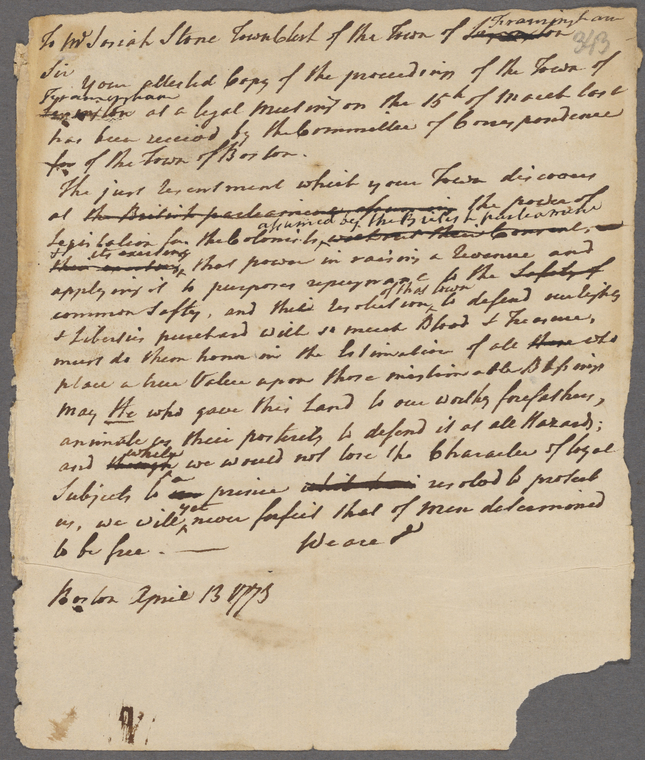 To Mr Josiah Stone Town Clerk of the Town of Lexington Framingham
343
Sir
Your attested Copy of the proceedings of the Town of
Framingham
Lexington at a legal Meeting on the 15th of March last
has been receivd by the Committee of Correspondence
for of the Town of Boston.
The just resentment which your Town discovers
at the British parliament assuming the power of
assumed by the British parliament
Legislation for the Colonists, without their Consent,
& its exerting
that power in raising a Revenue and
applying it to purposes repugnant to the Safety of
of that town
common Safty, and their resolution to defend our rights
& Liberties purchasd with so much Blood & Treasure,
must do them honor in the Estimation of all those who
place a true Value upon those inestimable Blessings
May He who gave this Land to our worthy forefathers,
animate us their posterity to defend it at all Hazards;
while
and though we would not lose the Character of loyal
a
Subjects to prince resolvd to protect
yet
us, we will never forfeit that of Men determined
to be free. — We are &
Boston April 13 1773